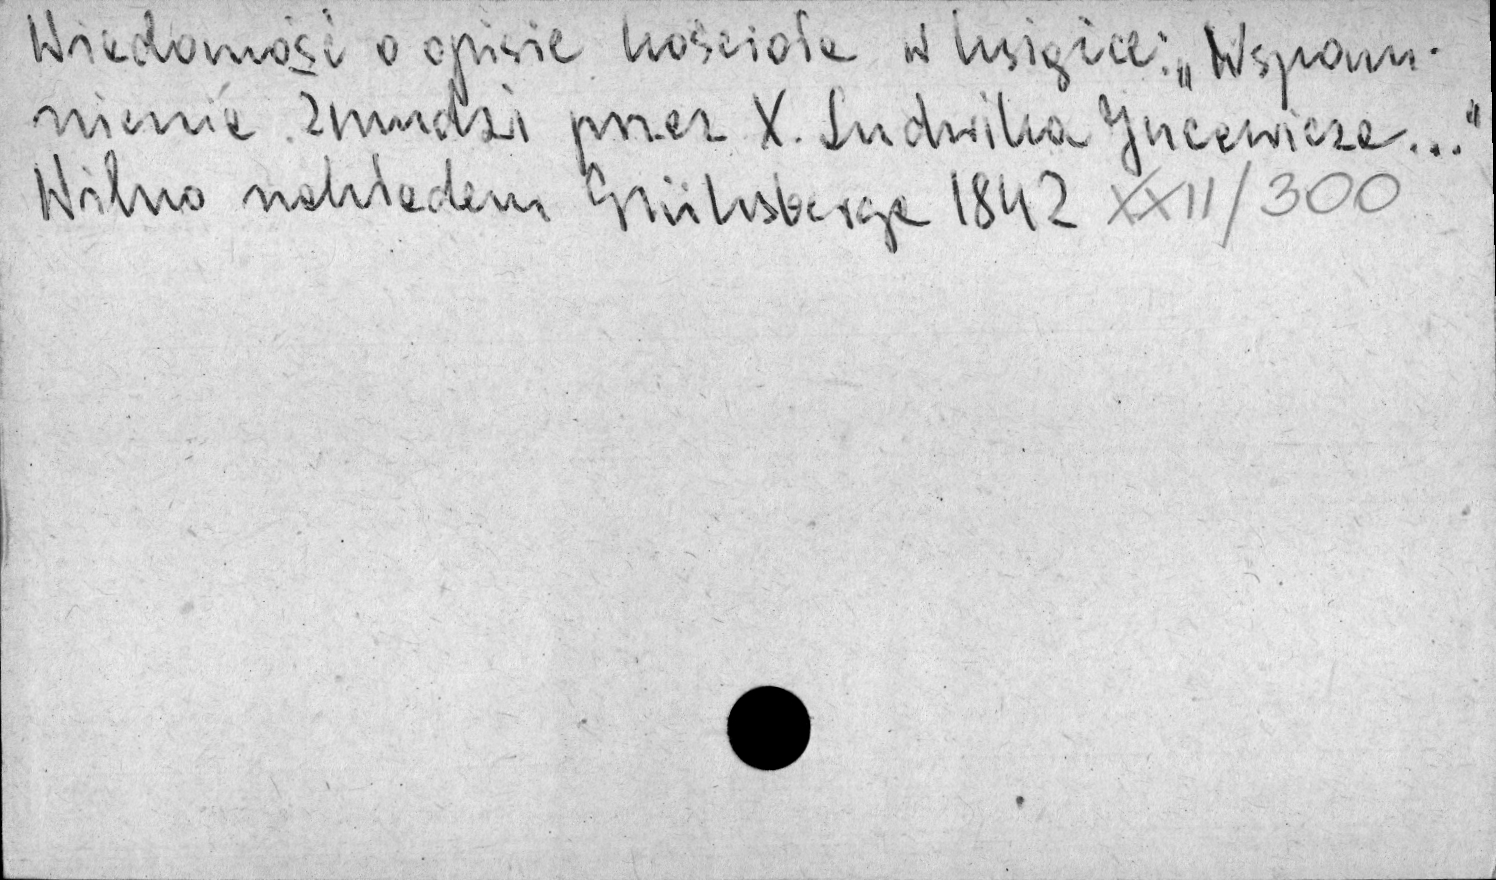 Wiadomość o opisie kościoła w książce: „Wspom-
nienie Żmudzi przez X. Ludwika Jucewicza..."
Wilno nakładem Glüksberga 1842 XXII/300